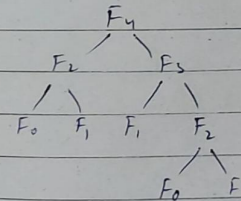 F₄
F₂ F₃
F₀ F₁ F₁ F₂
F₀ F